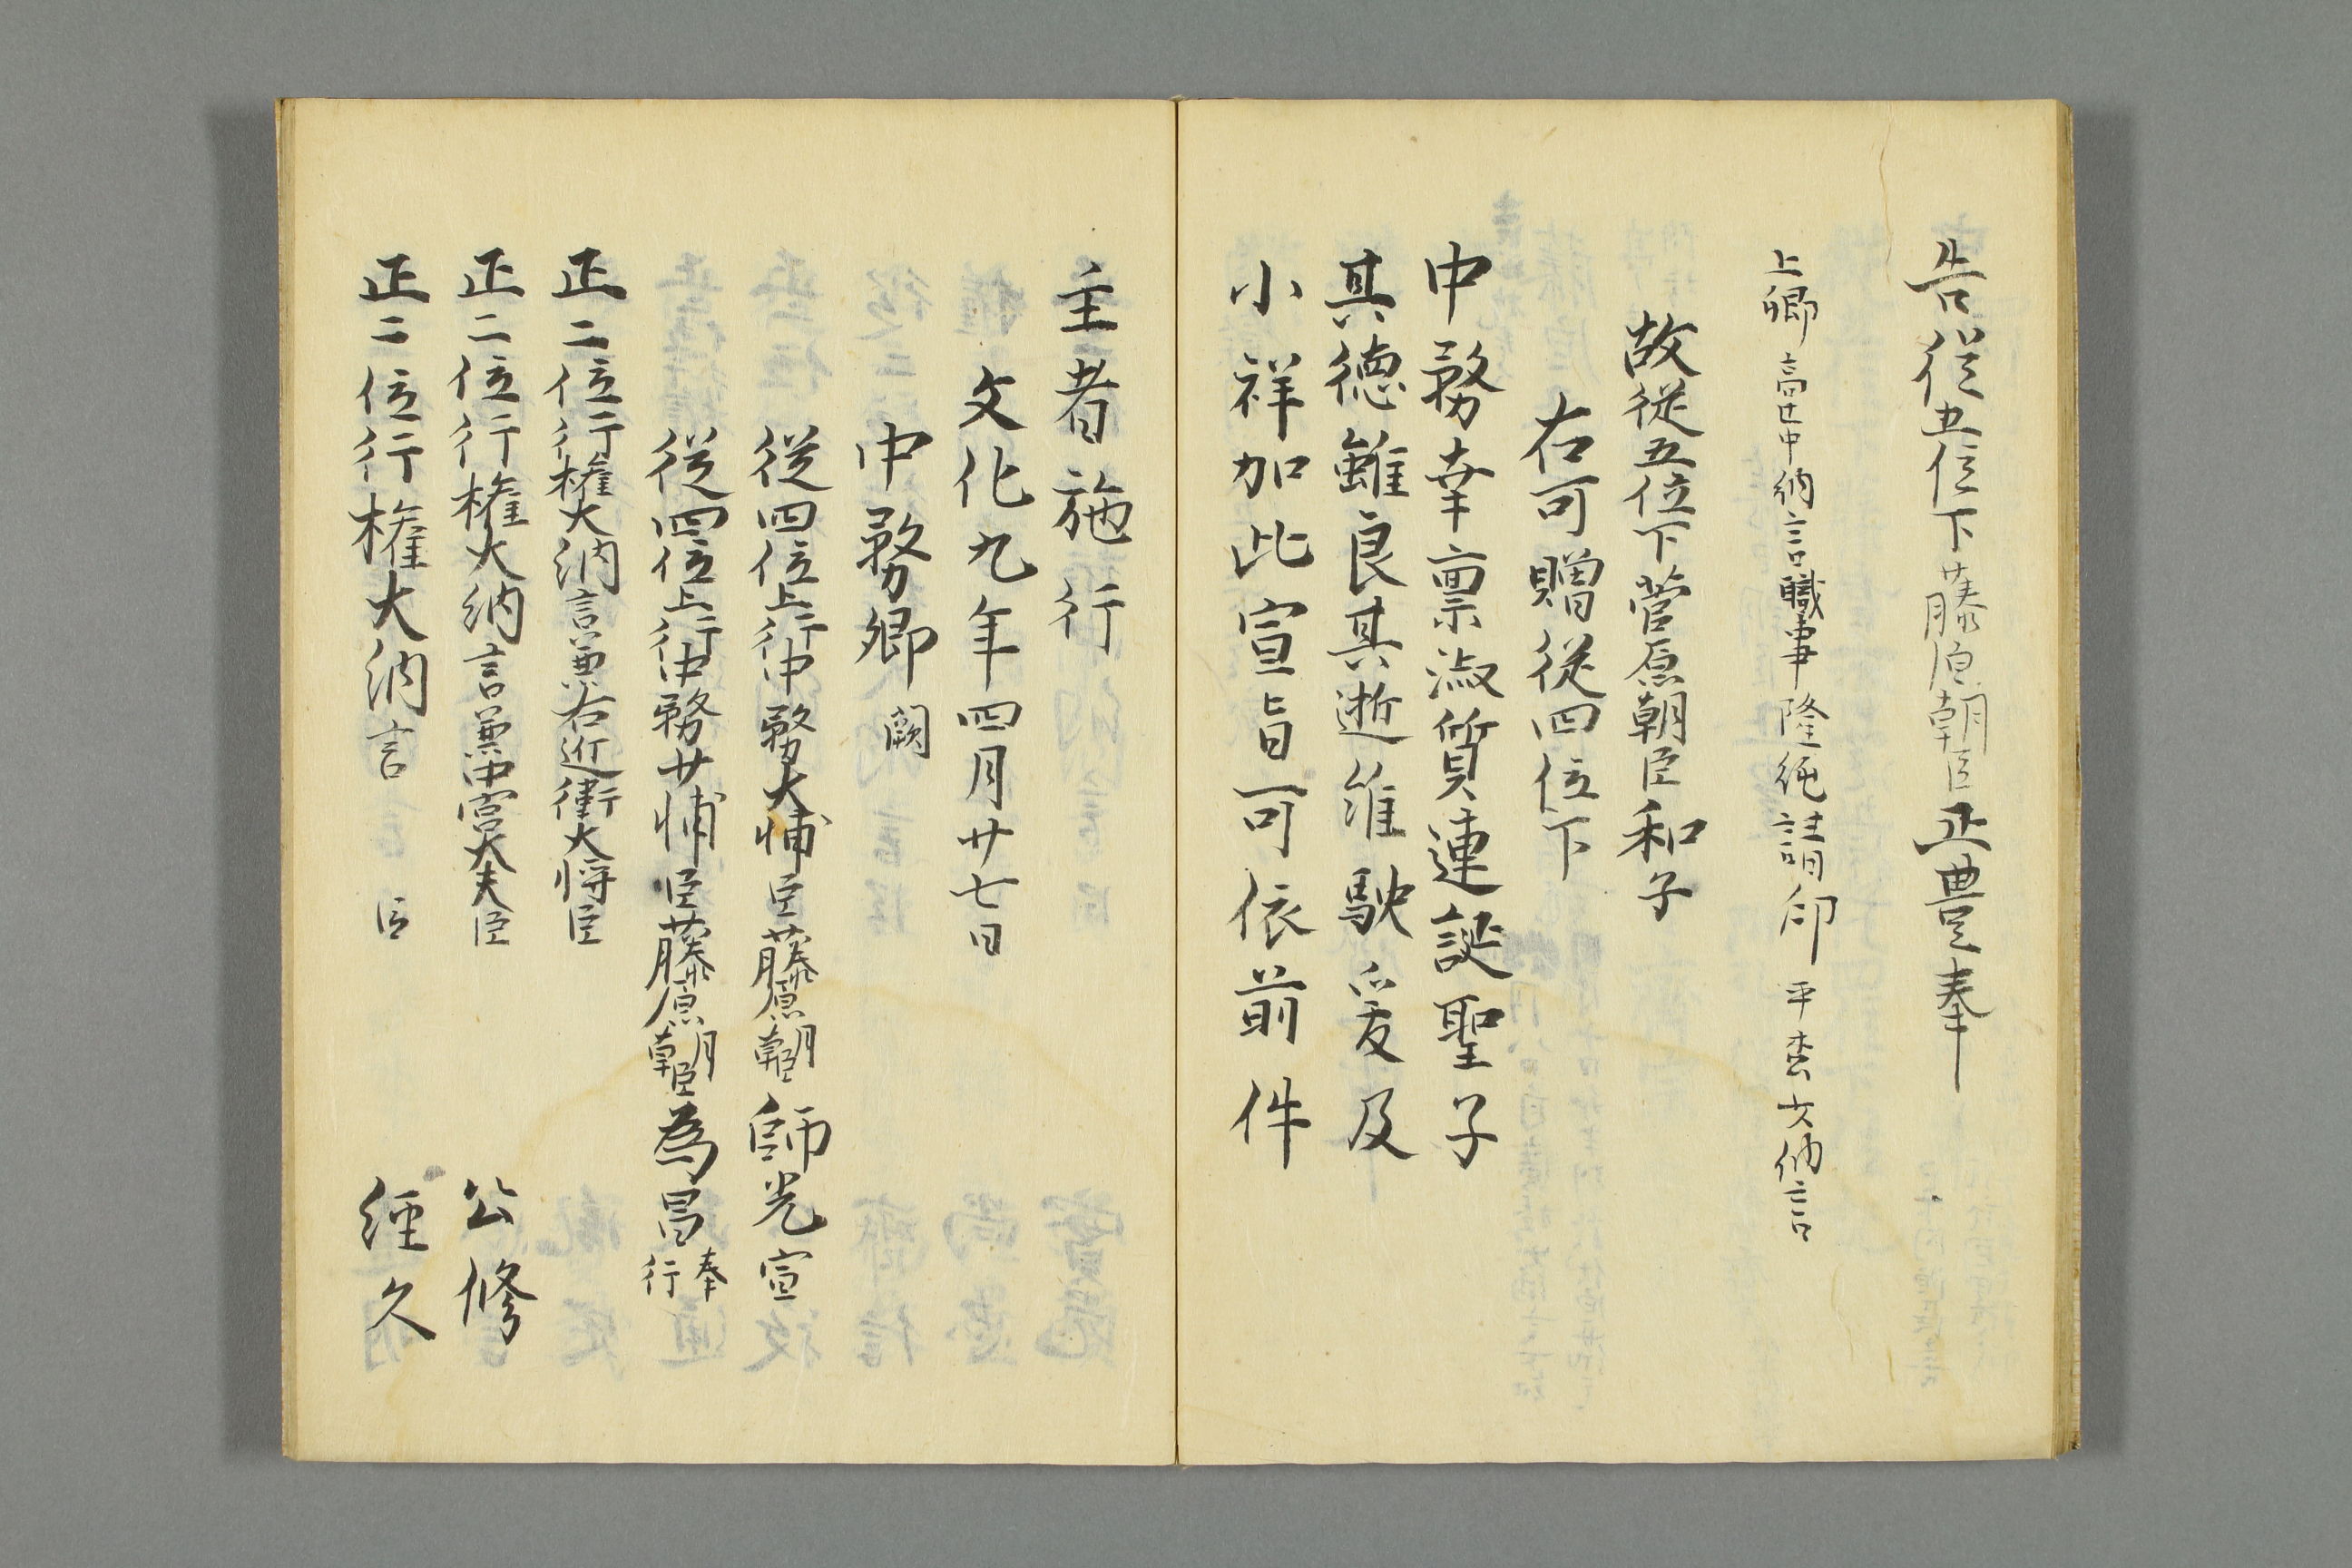 告従五位下藤原朝臣正豊奉
上卿高辻中納言職事隆純請印平松少納言
故従五位下菅原朝臣和子
右可贈従四位下
中務幸禀淑質連誕聖子
其徳雖良其逝維駛爰及
小祥加此宣旨可依前件
主者施行
文化九年四月廿七日
中務卿闕
従四位上行中務大輔臣藤原朝臣師光宣
従四位上行中務少輔臣藤原朝臣為昌奉行
正二位行権大納言兼右近衛大将臣
正二位行権大納言兼中宮大夫臣 公修
正二位行権大納言 臣 経久